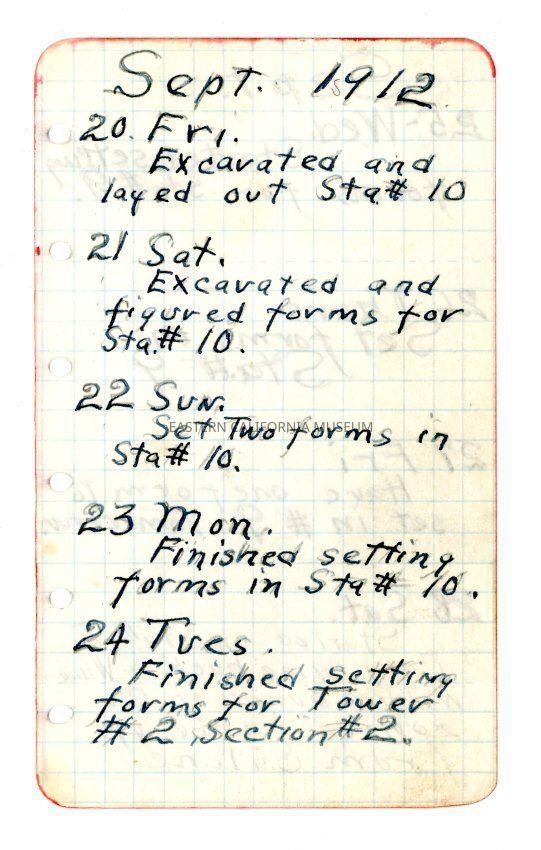 Sept. 1912
20. Fri.
Excavated and
layed out Sta# 10
21 Sat.
Excavated and
figured forms for
Sta.# 10.
22 Sun.
EASTERN CALIFORNIA MUSEUM
Set Two forms in
Sta# 10.
23 Mon.
Finished setting
forms in Sta# 10.
24 Tues.
Finished setting
forms for Tower
# 2, Section #2.